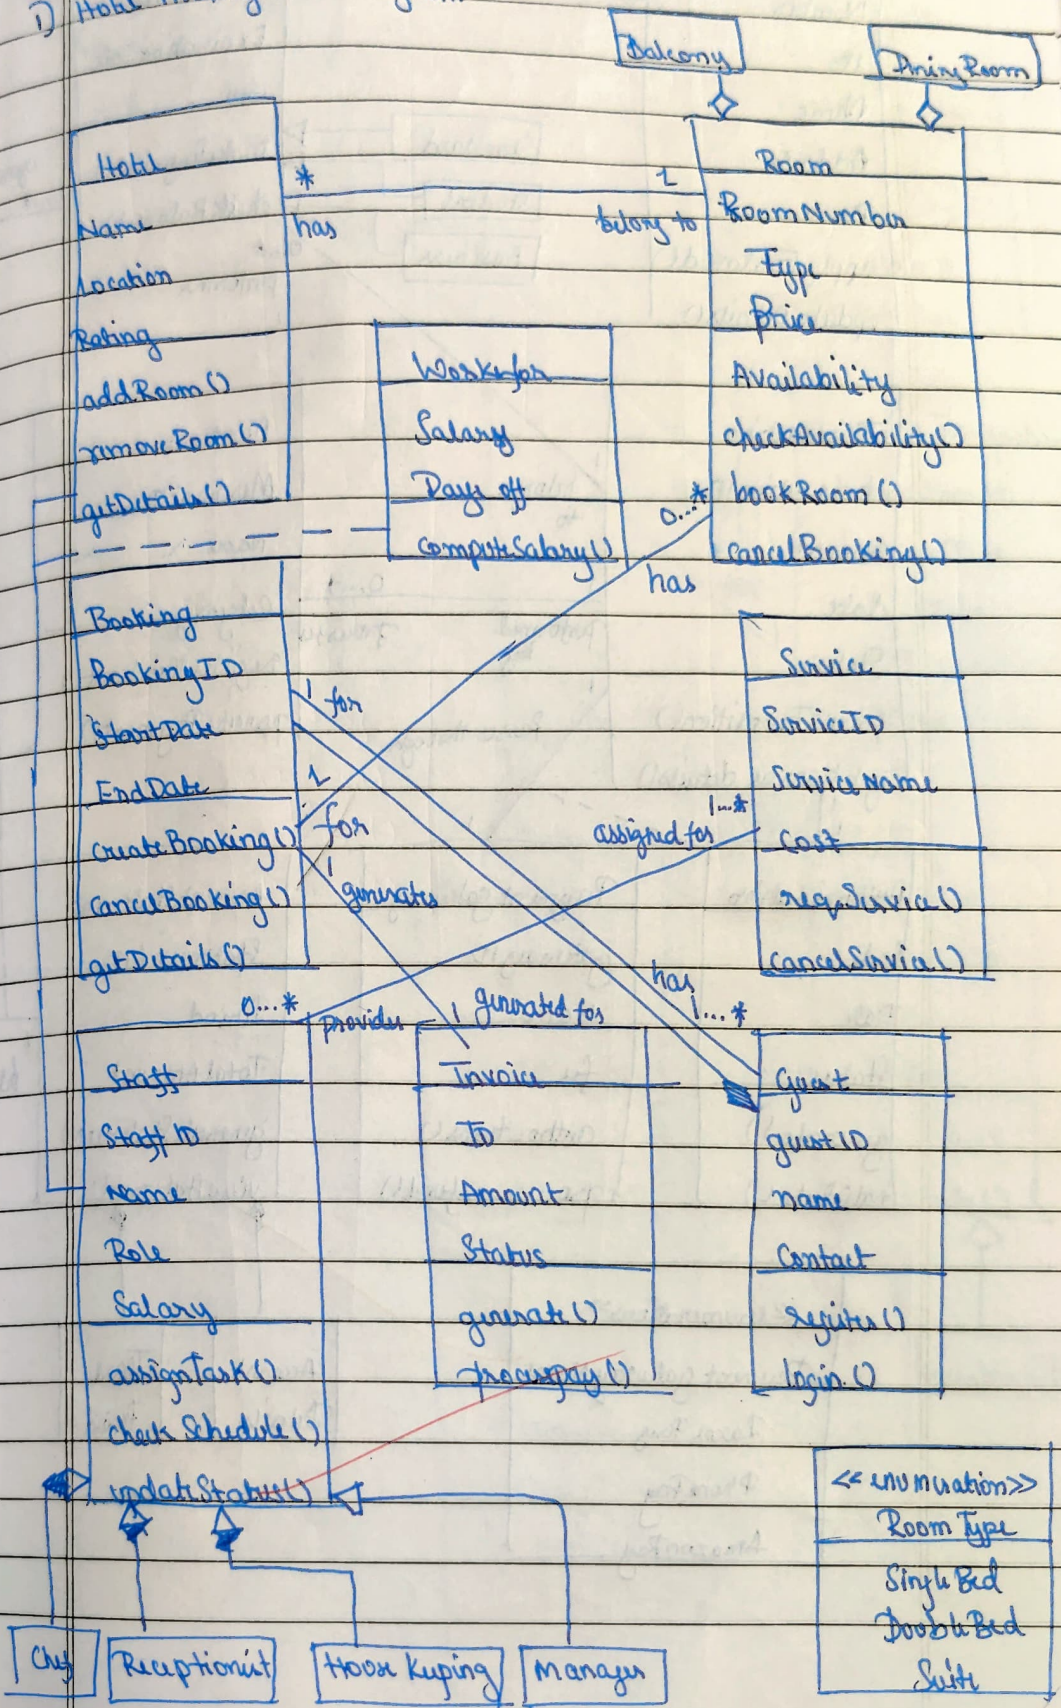 1) Hotel
Balcony
Dining Room
Hotel
Name
Location
Rating
addRoom()
removeRoom()
getDetails()
*
has
1
belong to
Room
RoomNumber
Type
Price
Availability
checkAvailability()
bookRoom()
cancelBooking()
Worksfor
Salary
Days off
computeSalary()
0...*
has
Booking
BookingID
StartDate
EndDate
createBooking()
cancelBooking()
getDetails()
1 for
1
for
1
generates
Service
ServiceID
ServiceName
Cost
req.Service()
cancelService()
1...*
assigned for
0...*
provides
1 generated for
has
1...*
Staff
Staff ID
Name
Role
Salary
assignTask()
check Schedule()
updateStatus()
Invoice
ID
Amount
Status
generate()
processpay()
Guest
guestID
name
Contact
register()
login()
Chef
Receptionist
House Keeping
Manager
<<enumeration>>
Room Type
Single Bed
Double Bed
Suite